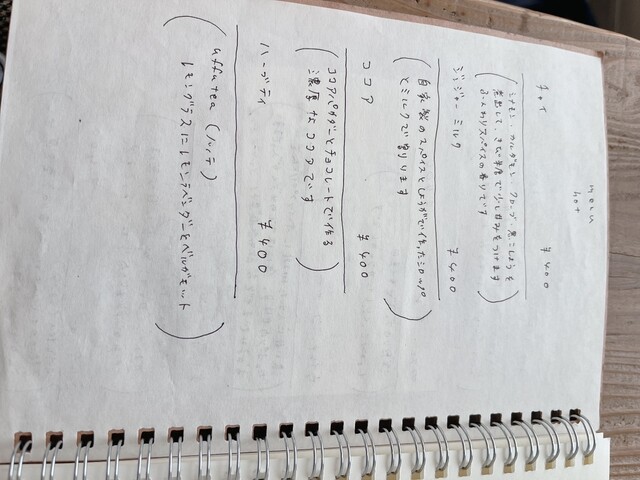 menu
hot
チャイ ¥400
(シナモン、カルダモン、クローブ、黒こしょうを
煮出して、きび辛糖で少し甘みをつけます
ふんわりスパイスの香りです)
ジンジャーミルク ¥400
(自家製のスパイスとしょうがで作ったシロップ
とミルクで割ります)
ココア ¥400
(ココアパウダーとチョコレートで作る
濃厚なココアです)
ハーブティ ¥400
uffu tea
レモングラスにレモンラベンダーとベルガモット)